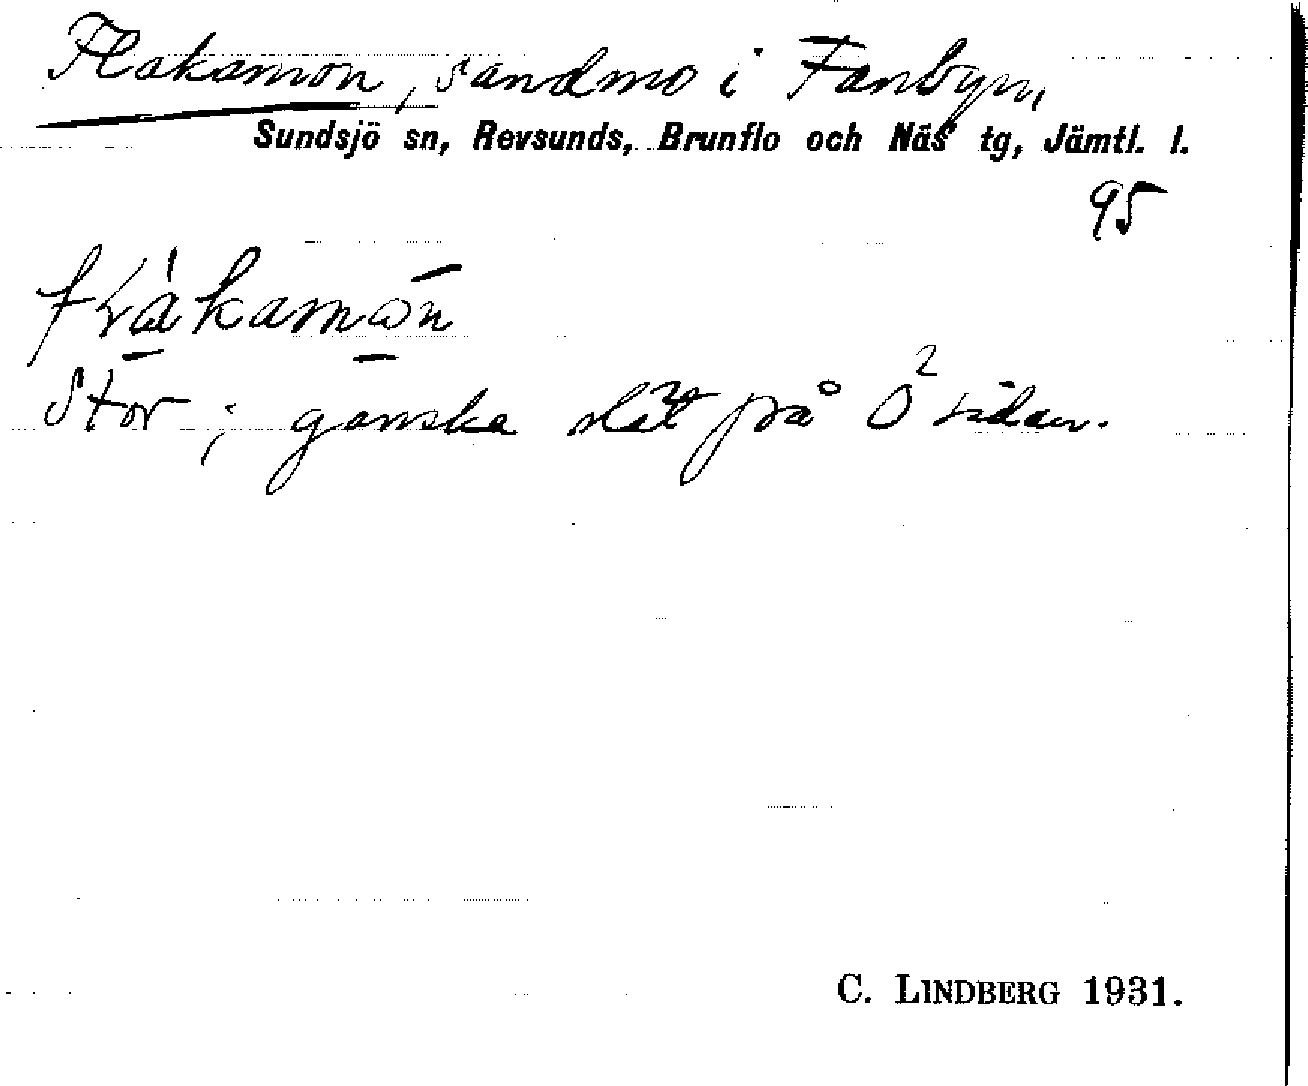 Flakamon, sandmo i Fanbyn,
Sundsjö sn, Revsunds, Brunflo och Näs tg, Jämtl. l.
95
Stor; ganska slät på Ö sidan.
C. LINDBERG 1931.